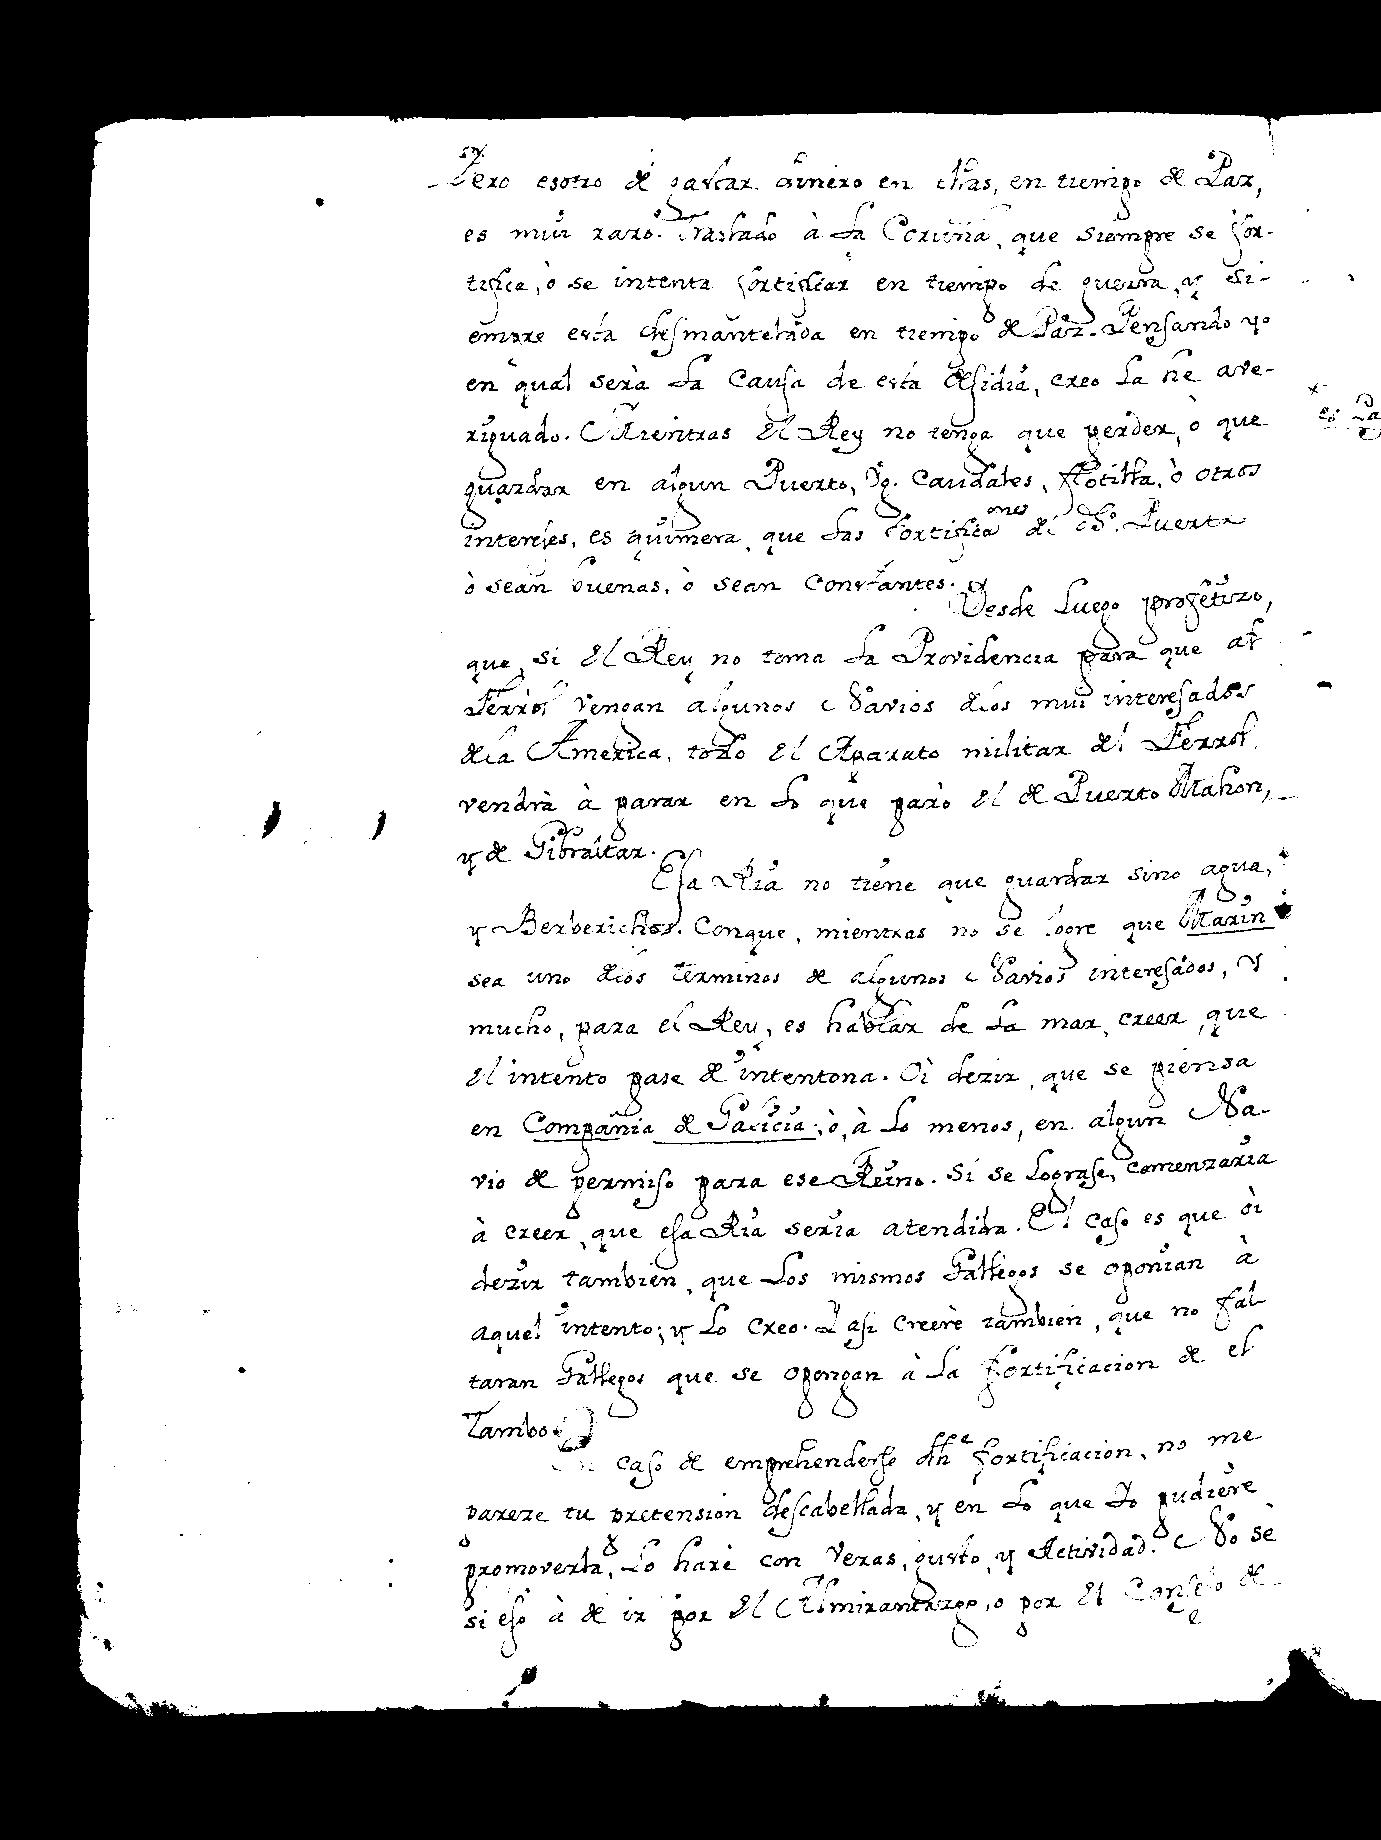 Pero esotro de gastar dinero en ellas, en tiempo de Paz,
es mui raro. Traslado à La Coruña, que siempre se for-
tifica, ò se intenta fortificar en tiempo de guerra, y si-
empre està desmantelada en tiempo de Paz. Pensando yo
en qual serà La Causa de esta desidia, creo La hè ave-
riguado. Mientras el Rey no tenga que perder, ò que
guardar en algun Puerto, Vg. Caudales, flotilla, ò otros
intereses, es quimera, que Las fortificaones del dho. Puerto
ò sean buenas, ò sean Constantes.
Desde Luego profetizo,
que si el Rey no toma La Providencia para que al
Ferrol vengan algunos Navios delos mui interesados
dela America, todo el Aparato militar del Ferrol
vendrà à parar en Lo que parò el de Puerto Mahon,
y de Gibraltar.
Esa Ria no tiene que guardar sino agua,
y Berberichos. Conque, mientras no se logre que Marin
sea uno delos terminos de algunos Navios interesados, y
mucho, para el Rey, es hablar de La mar, creer, que
el intento pase de intentona. Oì dezir, que se piensa
en Compañia de Galicia; ò, à Lo menos, en algun Na-
vio de permiso para ese Reino. Si se Lograse, comenzaria
à creer, que esa Ria seria atendida. El caso es que oì
dezir tambien, que Los mismos Gallegos se oponian à
aquel intento; y Lo creo. Y asi creerè tambien, que no fal
taran Gallegos que se opongan à La fortificacion de el
Tambo.
En caso de emprehenderse dhe fortificacion, no me
pareze tu pretension descabellada, y en Lo que Io pudiere
promoverla, Lo harè con Veras, gusto, y Actividad. No sè
si eso à de ir por el Almirantazgo, o por el Consejo de